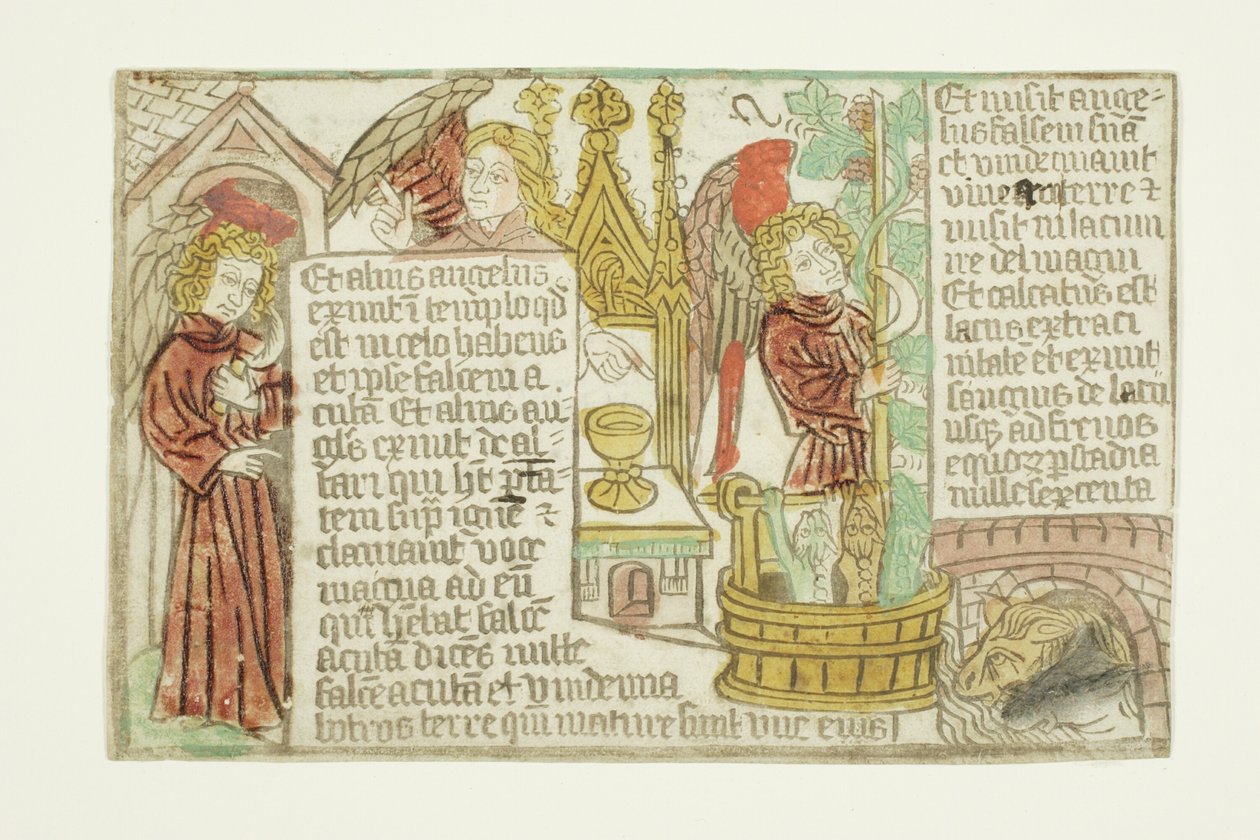 Et alius angelus
exiuit ī templo qd
est in celo habens
et ipse falcem a.
cutā Et alius an=
gl's exiuit de al=
tari qui hт̄ ptā=
tem sup ignē ⁊
clamauit voce
magna ad eū
qui hēbat falcē
acutā dicēs mitte
falcē acutā et vindemia
botros terre qm̄ mature sunt vue eius
Et misit ange=
lus falcem suā
et vindemauit
terre ⁊
misit in lacum
ire dei magni
Et calcatus est
lacus extra ci
uitatē et exiuit
sanguis de lacu
usqꝫ ad frenos
equoꝝ p stadia
mille sexcenta